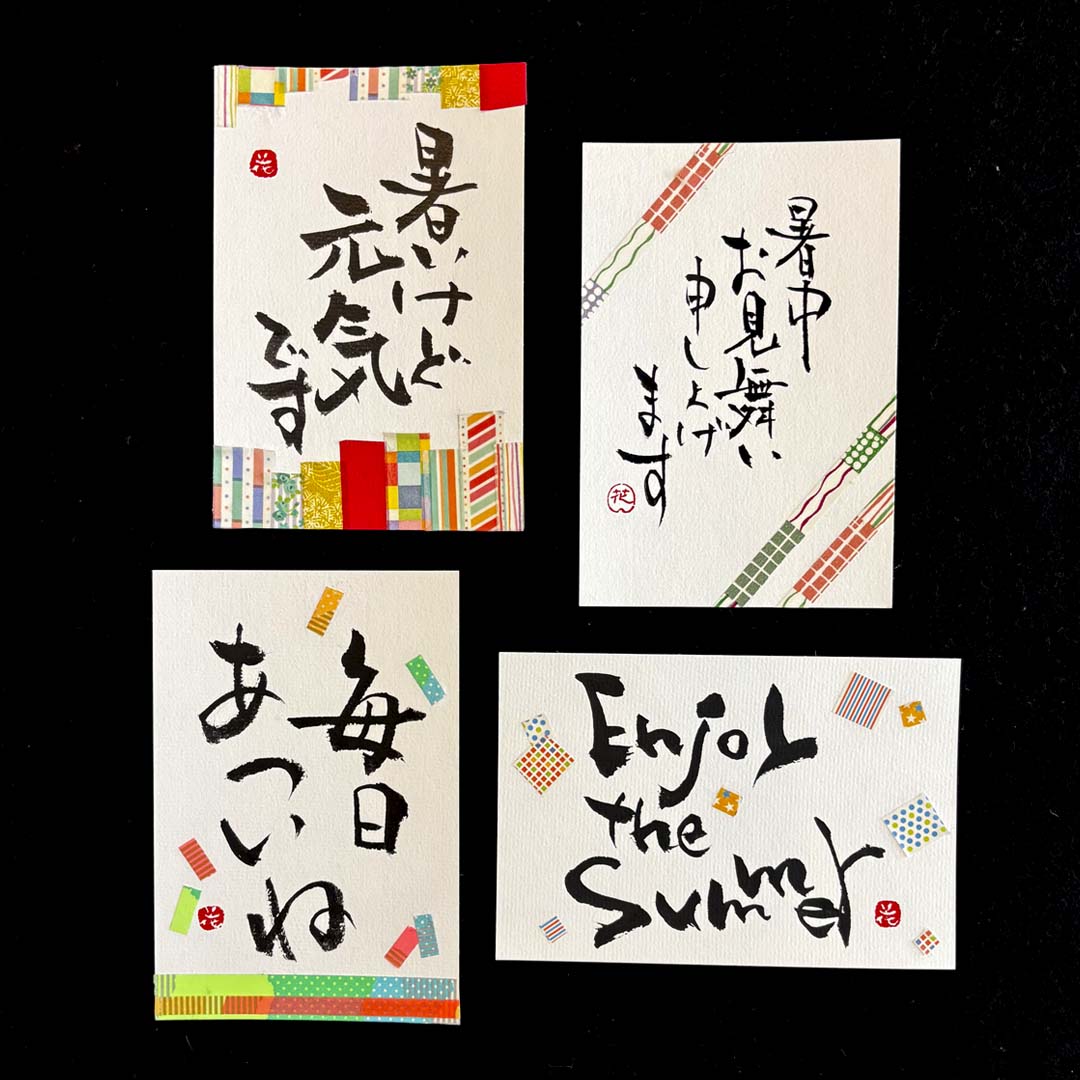 暑いけど
元気
です
花
暑中
お見舞い
申し上げ
ます
花
毎日
あついね
花
Enjoy
the
Summer
花